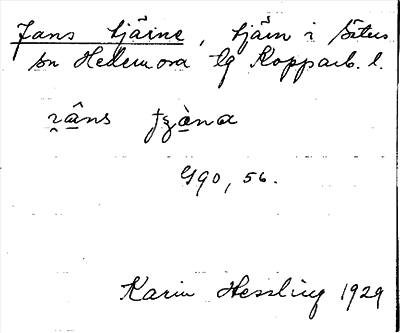 Jans tjärne, tjärn i Säters
sn Hedemora tg Kopparb. l.
G90, 56.
Karin Hessling 1929